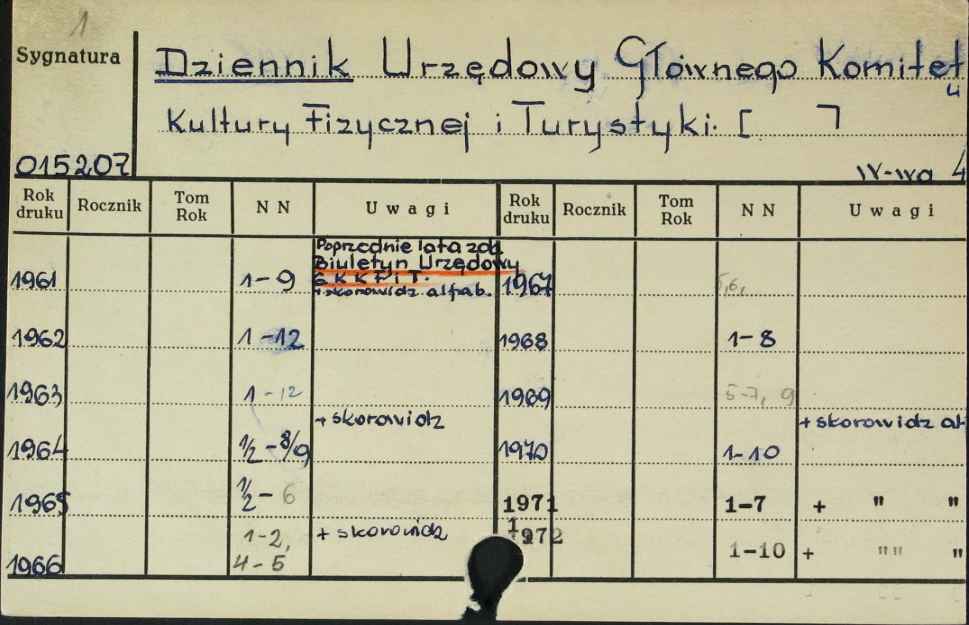 1
Sygnatura
Dziennik Urzędowy Głównego Komitet
u
Kultury Fizycznej i Turystyki. [ ]
015207
W-wa 4
Rok druku Rocznik Tom Rok N N Uwagi Rok druku Rocznik Tom Rok N N Uwagi
Poprzednie lata zob.
Biuletyn Urzędowy
G K K F i T.
+ skorowidz alfab.
1961 1-9 1967 5,6,
1962 1-12 1968 1-8
1963 1-12 1969 5-7, 9
+ skorowidz + skorowidz al
1964 1/2-8/9 1970 1-10
1965 1/2-6 1971 1-7 + " "
1966 1-2, 4-5 + skorowidz 1972 1-10 + "" "